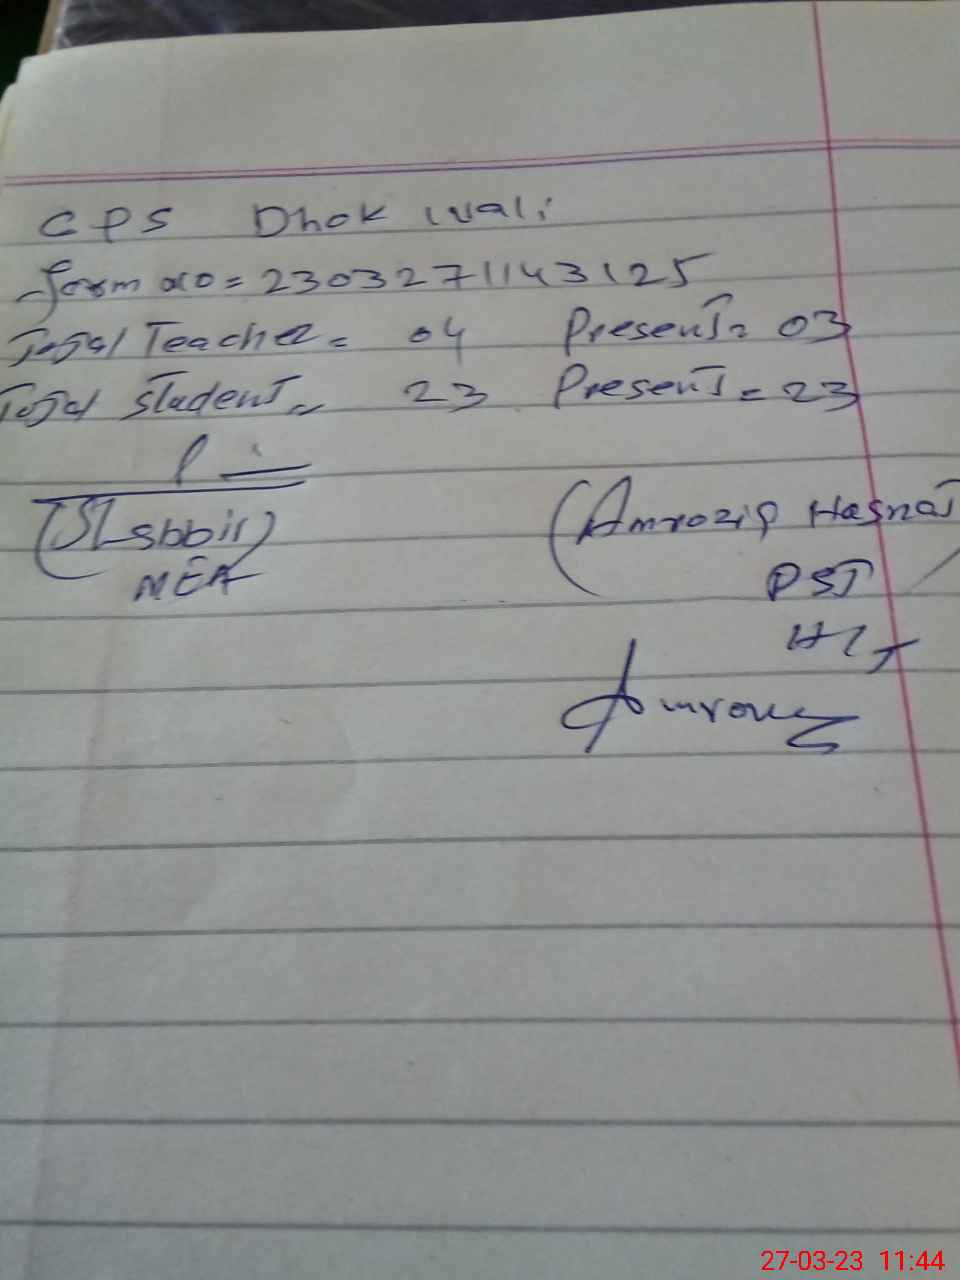 GPS Dhok Wali
form no = 2303271143125
Total Teacher = 04 Present = 03
Total Student = 23 Present = 23
(Shabbir) (Amrozia Hasnat
MEA PST
HT
27-03-23 11:44